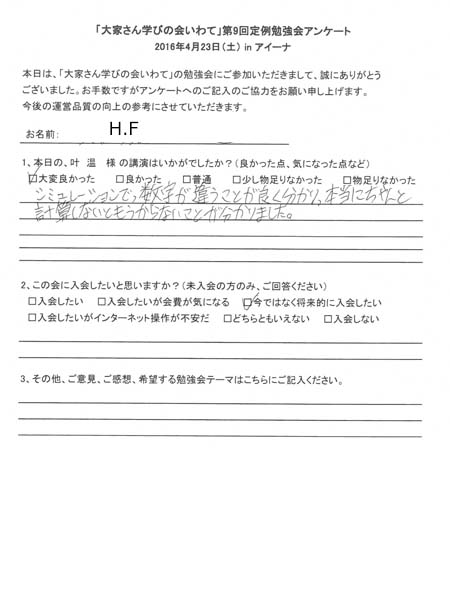 「大家さん学びの会いわて」第9回定例勉強会アンケート
2016年4月23日(土) in アイーナ
本日は、「大家さん学びの会いわて」の勉強会にご参加いただきまして、誠にありがとう
ございました。お手数ですがアンケートへのご記入のご協力をお願い申し上げます。
今後の運営品質の向上の参考にさせていただきます。
お名前: H.F
1、本日の、叶 温 様 の講演はいかがでしたか?(良かった点、気になった点など)
☑大変良かった □良かった □普通 □少し物足りなかった □物足りなかった
シミュレーションでっ数字が違うことが良く分かり、本当にちゃんと
計算しないともうからないことが分かりました。
2、この会に入会したいと思いますか?(未入会の方のみ、ご回答ください)
□入会したい □入会したいが会費が気になる ☑今ではなく将来的に入会したい
□入会したいがインターネット操作が不安だ □どちらともいえない □入会しない
3、その他、ご意見、ご感想、希望する勉強会テーマはこちらにご記入ください。